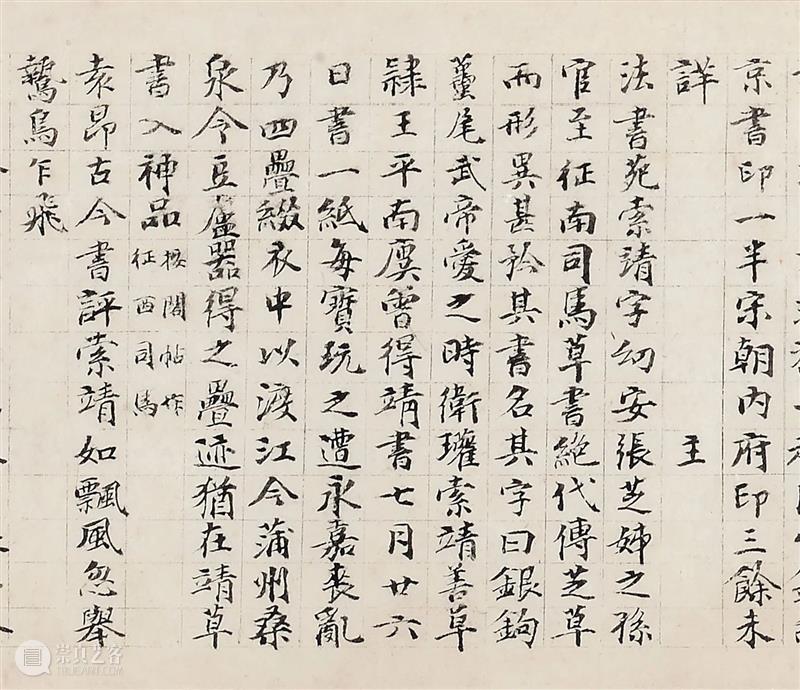 京書印一半宋朝內府印三餘未
詳 王
法書苑索靖字幼安張芝姊之孫
官至征南司馬草書絕代傳芝草
而形異甚矜其書名其字曰銀鉤
蠆尾武帝愛之時衛瓘索靖善草
隸王平南廙曾得靖書七月廿六
日書一紙每寶玩之遭永嘉喪亂
乃四疊綴衣中以渡江今蒲州桑
泉令豆盧器得之疊迹猶在靖草
書入神品 按閣帖作
征西司馬
袁昂古今書評索靖如飄風忽舉
鷙鳥乍飛
崇真艺客
TRUEART.COM